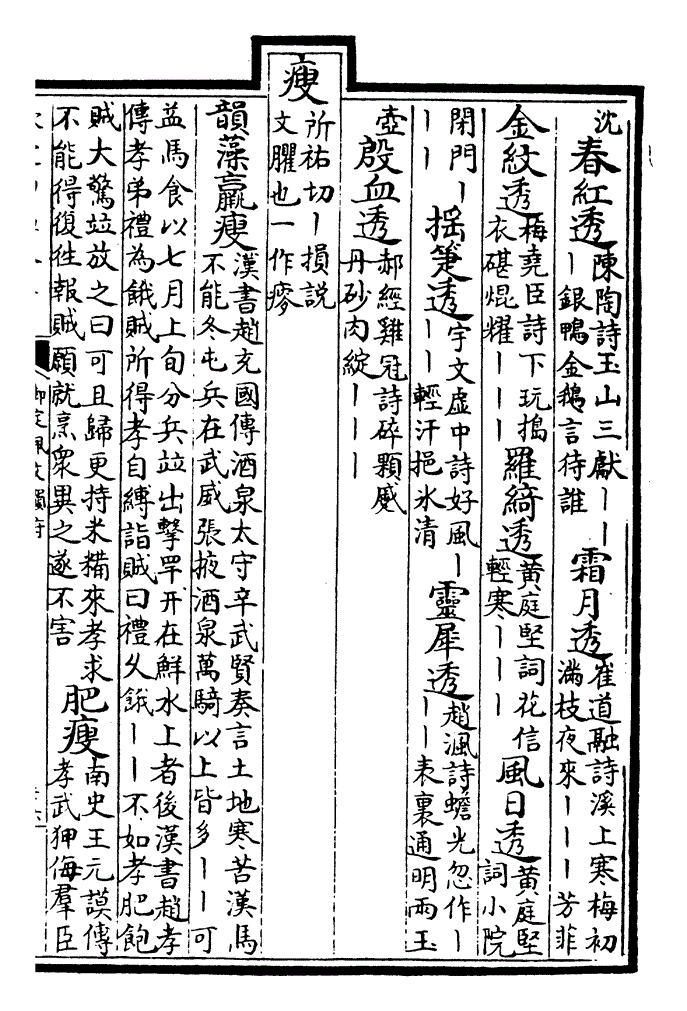 沈春紅透陳陶詩玉山三獻丨丨丨銀鴨金鵝言待誰霜月透崔道融詩溪上寒梅初滿枝夜來丨丨丨芳菲
金紋透梅堯臣詩下玩搗衣碪焜耀丨丨丨羅綺透黃庭堅詞花信輕寒丨丨丨風日透黃庭堅詞小院
閉門丨丨丨摇箑透宇文虛中詩好風丨丨丨輕汗挹氷清靈犀透趙渢詩蟾光忽作丨丨丨表裏通明兩玉
壺殷血透郝經雞冠詩碎顆蹙丹砂肉綻丨丨丨
瘦所祐切丨損説文臞也一作瘳
韻藻羸瘦漢書趙充國傳酒泉太守辛武賢奏言土地寒苦漢馬不能冬屯兵在武威張掖酒泉萬騎以上皆多丨丨可
益馬食以七月上旬分兵竝出擊罕幵在鮮水上者後漢書趙孝傳孝弟禮為餓賊所得孝自縛詣賊曰禮久餓丨丨不如孝肥飽
賊大驚竝放之曰可且歸更持米糒來孝求不能得復往報賊願就烹衆異之遂不害肥瘦南史王元謨傳孝武狎侮羣臣
御定佩文韻府